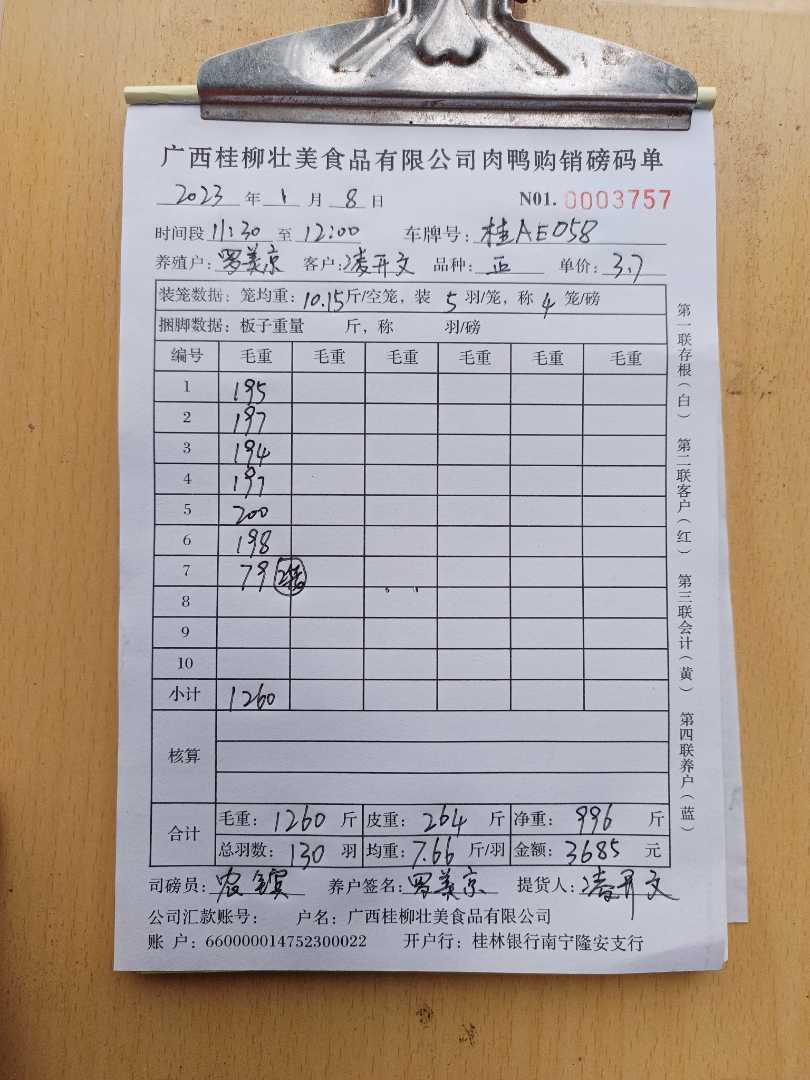 广西桂柳壮美食品有限公司肉鸭购销磅码单
2023 年 1 月 8 日 N01. 0003757
时间段 11:30 至 12:00 车牌号: 桂AE058
养殖户: 罗美京 客户: 凌开文 品种: 正 单价: 3.7
装笼数据: 笼均重: 10.15斤/空笼, 装 5 羽/笼, 称 4 笼/磅
捆脚数据: 板子重量 斤, 称 羽/磅
编号 毛重 毛重 毛重 毛重 毛重 毛重
1 195
2 197
3 194
4 197
5 200
6 198
7 79
8
9
10
小计 1260
核算
合计 毛重: 1260 斤 皮重: 264 斤 净重: 996 斤
总羽数: 130 羽 均重: 7.66 斤/羽 金额: 3685 元
司磅员: 农 养户签名: 罗美京 提货人: 凌开文
公司汇款账号: 户名: 广西桂柳壮美食品有限公司
账 户: 660000014752300022 开户行: 桂林银行南宁隆安支行
第一联存根(白) 第二联客户(红) 第三联会计(黄) 第四联养户(蓝)